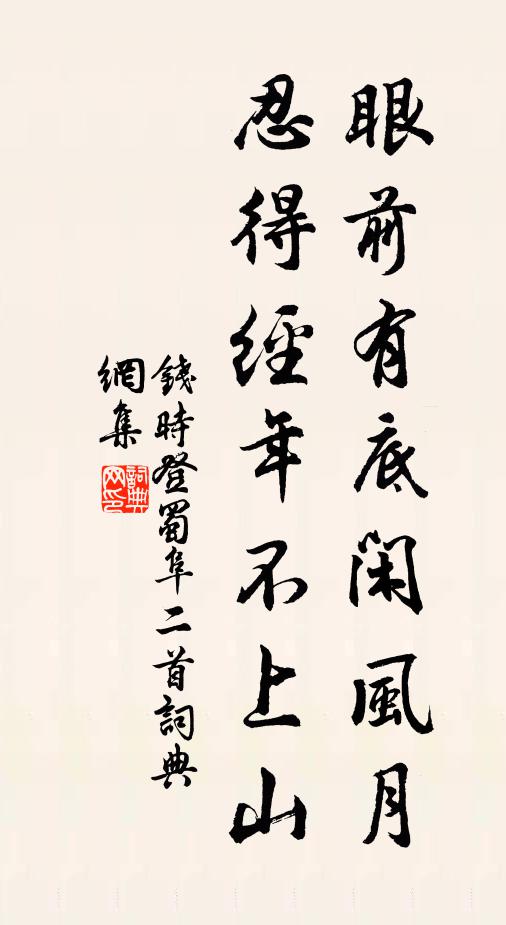 眼前有底閑風月
忍得經年不上山
錢時登蜀阜二首詞典
網集
詞典
网印